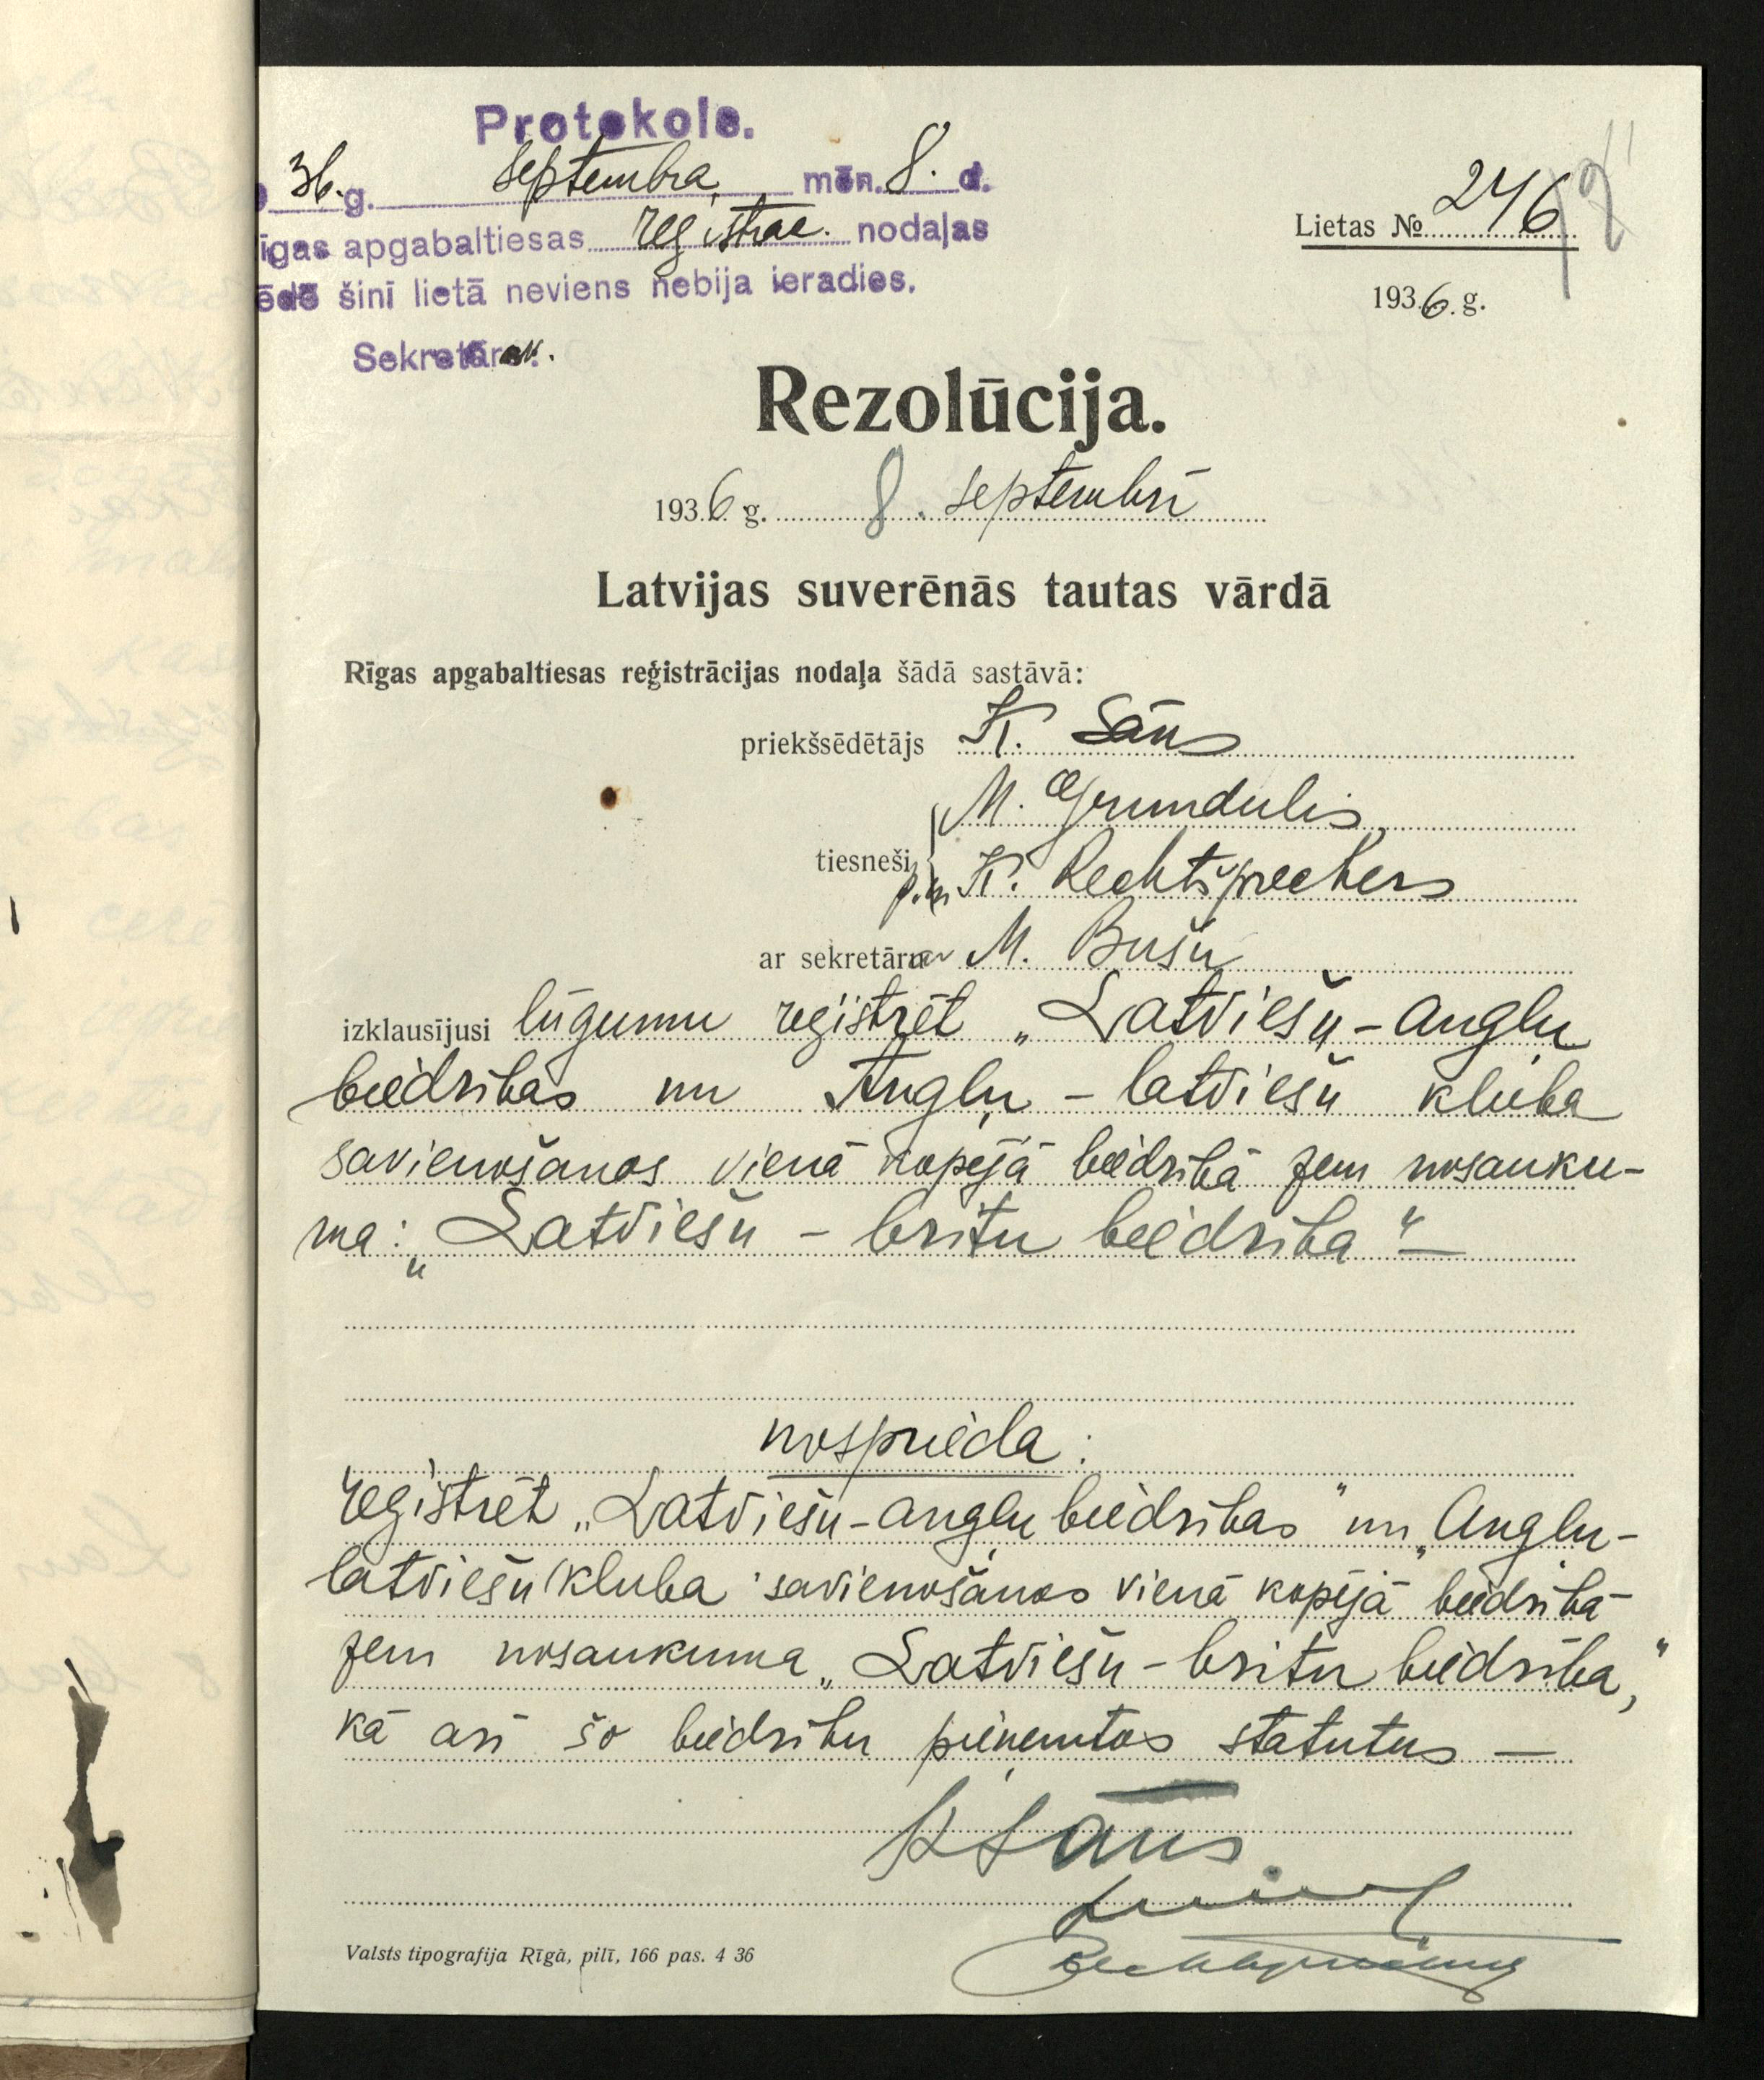 Protokols.
36. g. septembra mēn. 8. d.
īgas apgabaltiesas reģistrac. nodaļas
ēdē šinī lietā neviens nebija ieradies.
Sekretārs:
Lietas № 246
1936. g.
Rezolūcija.
1936. g. 8. septembrī
Latvijas suverēnās tautas vārdā
Rīgas apgabaltiesas reģistrācijas nodaļa šādā sastāvā:
priekšsēdētājs K. Sāns
M. Grundulis,
tiesneši p.i. K. Rechtšprechers
ar sekretāru M. Bušu
izklausījusi lūgumu reģistrēt „Latviešu-angļu
biedrības un Angļu-latviešu kluba
savienošanos vienā kopējā biedrībā zem nosauku-
ma: „Latviešu-britu biedrība“ —
nosprieda:
reģistrēt „Latviešu-angļu biedrības“ un „Angļu-
latviešu kluba“ savienošanos vienā kopējā biedrībā
zem nosaukuma „Latviešu-britu biedrība,“
kā arī šo biedrību pieņemtos statutus —
K Sāns.
Valsts tipografija Rīgā, pilī, 166 pas. 4 36